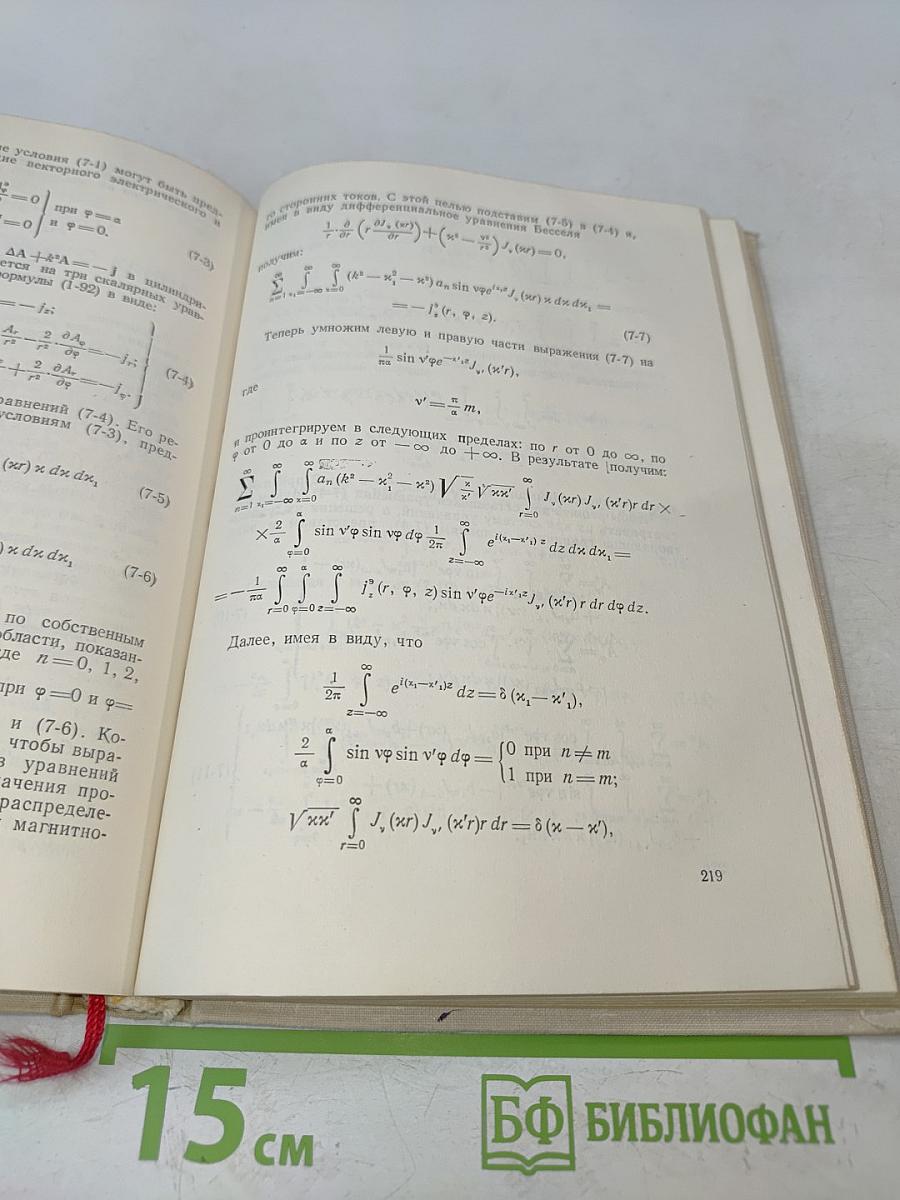 е условия (7-1) могут быть пред-
ие векторного электрического и
=0 при φ=α
=0 и φ=0.
(7-3)
ΔA+k²A=—j в цилиндри-
ется на три скалярных урав-
ормулы (1-92) в виде:
=—j_z;
A_r/r² — 2/r² · ∂A_φ/∂φ = —j_r;
+ 2/r² · ∂A_r/∂φ = —j_φ.
(7-4)
равнений (7-4). Его ре-
условиям (7-3), пред-
(ϰr) ϰ dϰ dϰ₁
(7-5)
) ϰ dϰ dϰ₁
(7-6)
по собственным
области, показан-
де n=0, 1, 2,
при φ=0 и φ=
и (7-6). Ко-
чтобы выра-
з уравнений
ачения про-
распределе-
магнитно-
го сторонних токов. С этой целью подставим (7-5) в (7-4) и,
имея в виду дифференциальное уравнения Бесселя
1/r · ∂/∂r (r ∂J_ν(ϰr)/∂r) + (ϰ² — ν²/r²) J_ν(ϰr) = 0,
получим:
∑_{n=1}^∞ ∫_{ϰ₁=—∞}^∞ ∫_{ϰ=0}^∞ (k² — ϰ₁² — ϰ²) a_n sin νφe^{iϰ₁z} J_ν(ϰr) ϰ dϰ dϰ₁ =
= — j_z^э (r, φ, z).
(7-7)
Теперь умножим левую и правую части выражения (7-7) на
1/πα sin ν′φe^{—ϰ′₁z} J_ν′ (ϰ′r),
где
ν′ = π/α m,
и проинтегрируем в следующих пределах: по r от 0 до ∞, по
φ от 0 до α и по z от —∞ до +∞. В результате получим:
∑_{n=1}^∞ ∫_{ϰ₁=—∞}^∞ ∫_{ϰ=0}^∞ a_n (k² — ϰ₁² — ϰ²) √(ϰ/ϰ′) √(ϰϰ′) ∫_{r=0}^∞ J_ν(ϰr) J_ν′(ϰ′r) r dr ×
× 2/α ∫_{φ=0}^α sin ν′φ sin νφ dφ 1/2π ∫_{z=—∞}^∞ e^{i(ϰ₁—ϰ′₁)z} dz dϰ dϰ₁ =
= — 1/πα ∫_{r=0}^∞ ∫_{φ=0}^α ∫_{z=—∞}^∞ j_z^э (r, φ, z) sin ν′φe^{—iϰ′₁z} J_ν′ (ϰ′r) r dr dφ dz.
Далее, имея в виду, что
1/2π ∫_{z=—∞}^∞ e^{i(ϰ₁—ϰ′₁)z} dz = δ (ϰ₁—ϰ′₁),
2/α ∫_{φ=0}^α sin νφ sin ν′φ dφ = {0 при n≠m
1 при n=m;
√(ϰϰ′) ∫_{r=0}^∞ J_ν(ϰr) J_ν′ (ϰ′r) r dr = δ (ϰ — ϰ′),
219
15 см
БФ БИБЛИОФАН